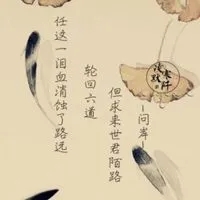 任这一泪血消蚀了路远
轮回六道
但求来世君陌路
—问岸—